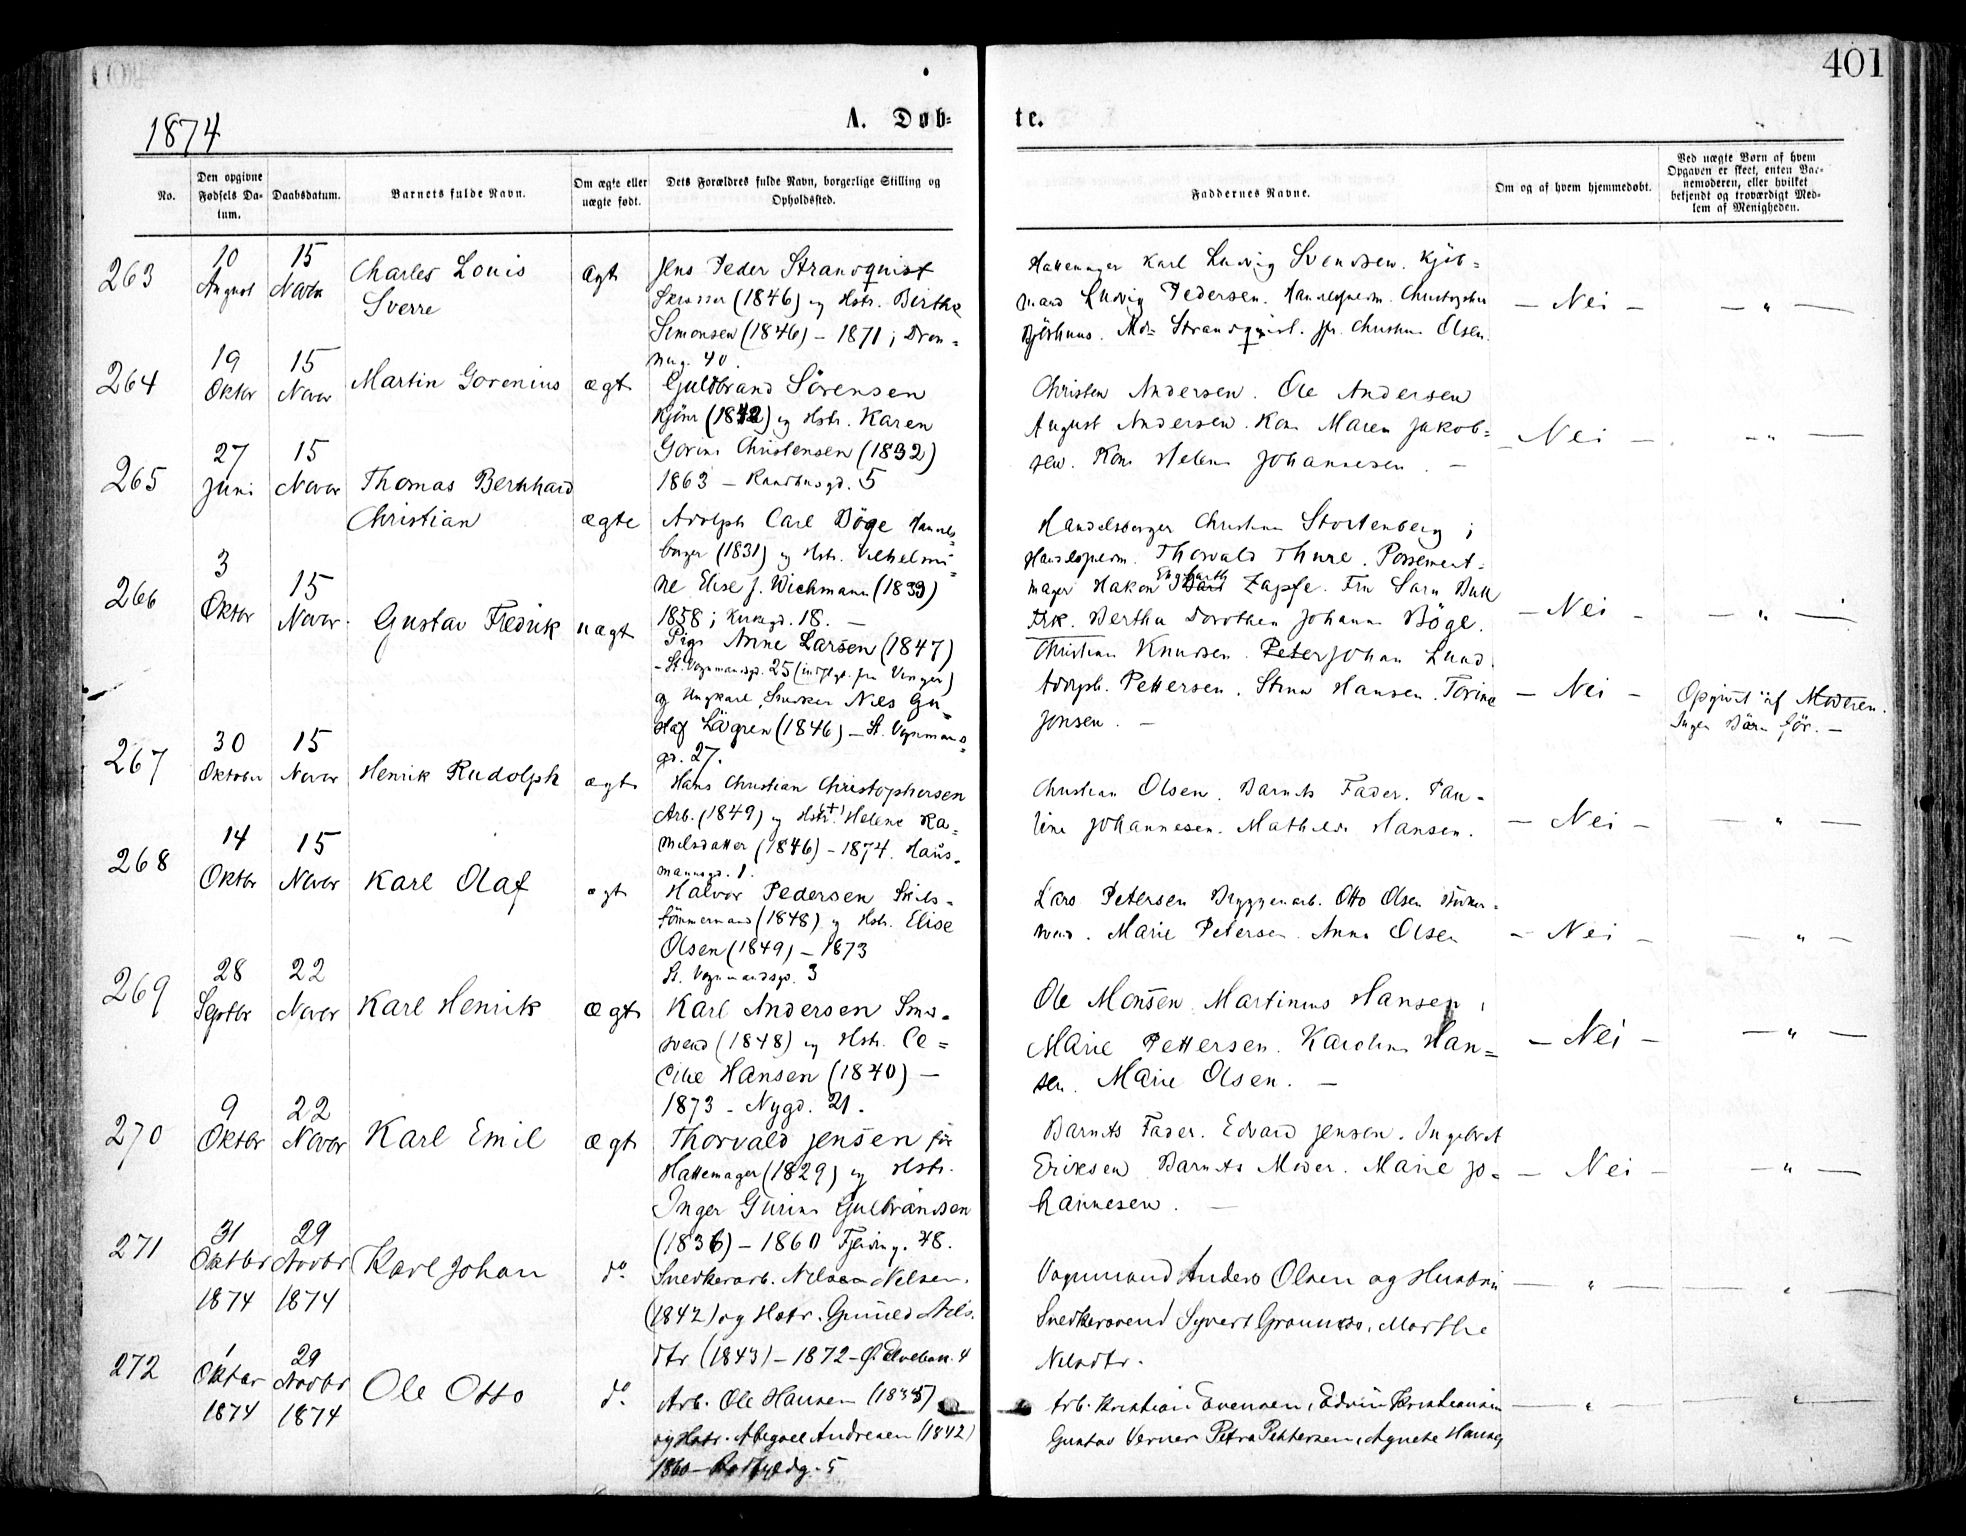 401
1874
A. Døb-
te.
No.
Den opgivne Fødsels Da-tum.
Daabsdatum.
Barnets fulde Navn.
Om ægte eller uægte født.
Dets Forældres fulde Navn, borgerlige Stilling og Opholdssted.
Faddernes Navne.
Om og af hvem hjemmedøbt.
Ved uægte Børn af hvem Opgaven er skeet, enten Bar-nemoderen, eller hvilket bekjendt og troværdigt Med-lem af Menigheden.
263
10 August
15 Novbr
Charles Louis
Sverre
ægt
Jens Peder Strandquist
(1846) og Hstr. Birthe
Simonsen (1846) - 1871 ; Dron-
ng. 40.
Hattemager Karl Ludvig Svendsen. Kjöb-
mand Ludvig Pedersen. Christopher
Strandquist. Christine Olsen.
- Nei -
- " -
264
19 Oktbr
15 Novbr
Martin Gorenius
ægt
Guldbrand Sörensen
(1842) og Hstr. Karen
Gorine Christensen (1832)
1863 - 5
Christen Andersen. Ole Andersen
August Andersen. Kone Maren Jakob-
sen. Kone Helene Johannesen. -
- Nei -
- " -
265
27 Juni
15 Novbr
Thomas Bernhard
Christian
ægte
Adolph Carl Böge Handels-
borger (1831) og Hstr. Vilhelmi-
ne Elise J. Wichmann (1833)
1858 ; Kirkegd. 18. -
Handelsborger Christian Stortenberg ;
Thorvald Thure. Possement-
mager Hakon Zapfe. Fru Sara Bull
Frk. Bertha Dorothea Johanne Böge.
- Nei -
- " -
266
3 Oktbr
15 Novbr.
Gustav Fredrik
uægt
Pige Anne Larsen (1847)
- St. Vognmandsgd. 25 (indflyt. fra Vinger)
og Ungkarl, Snedker Nils Gu-
staf Lögren (1846) - St. Vognmands-
gd. 27.
Christian Knudsen. Peter Johan Lund.
Adolph. Pettersen. Stina Hansen. Torine
Jonsen. -
- Nei -
Opgivet af Moderen.
Ingen Börn för. -
267
30 Oktober
15 Novbr
Henrik Rudolph
ægt
Hans Christian Christophersen
Arb. (1849) og Hstr. Helene Ra-
melsdatter (1846) - 1874. Haus-
mannsgd. 1.
Christian Olsen. Barnets Fader. Pau-
line Johannesen. Mathilde Hansen.
- Nei -
- " -
268
14 Oktbr
15 Novbr
Karl Olaf
ægt
Halvor Pedersen Skibs-
tömmermand (1848) og Hstr. Elise
Olsen (1849) - 1873
St. Vognmandsgd. 3
Lars Petersen Bryggeriarb. Otto Olsen
svend. Marie Petersen. Anna Olsen
- Nei -
- " -
269
28 Septbr
22 Novbr
Karl Henrik
ægt
Karl Andersen Sme-
svend (1848) og Hstr. Ce-
cilie Hansen (1840) -
1873 - Nygd. 21.
Ole Monsen. Martinus Hansen,
Marie Pettersen. Karoline Han-
sen. Marie Olsen. -
- Nei -
- " -
270
9 Oktbr
22 Novbr
Karl Emil
ægt
Thorvald Jensen för
Hattemager (1829) og Hstr.
Inger Gurine Gulbrandsen
(1836) - 1860 Fjerding. 48.
Barnets Fader. Edvard Jensen. Ingebret
Eriksen. Barnets Moder. Marie Jo-
hannesen. -
- Nei -
- " -
271
31 Oktbr 1874
29 Novbr 1874
Karl Johan
do.
Snedkerarb. Nelsen.
(1842) og Hstr. Gunild Nels.
dtr (1843) - 1872 - Ø. Elvebak. 4
Vognmand Anders Olsen og Hustru
Snedkersvend Syvert Marthe
Nelsdtr.
- " -
- " -
272
1 Oktbr 1874
29 Novbr 1874
Ole Otto
do.
Arb. Ole Hansen (1835)
og Hstr. Abegael Andresen (1842)
1860 - Rodfyldg. 5
Arb. Kristian Evensen, Edvin Kristiansen
Gustav Verner Petra Pettersen, Agnete Hansen
- " -
- " -